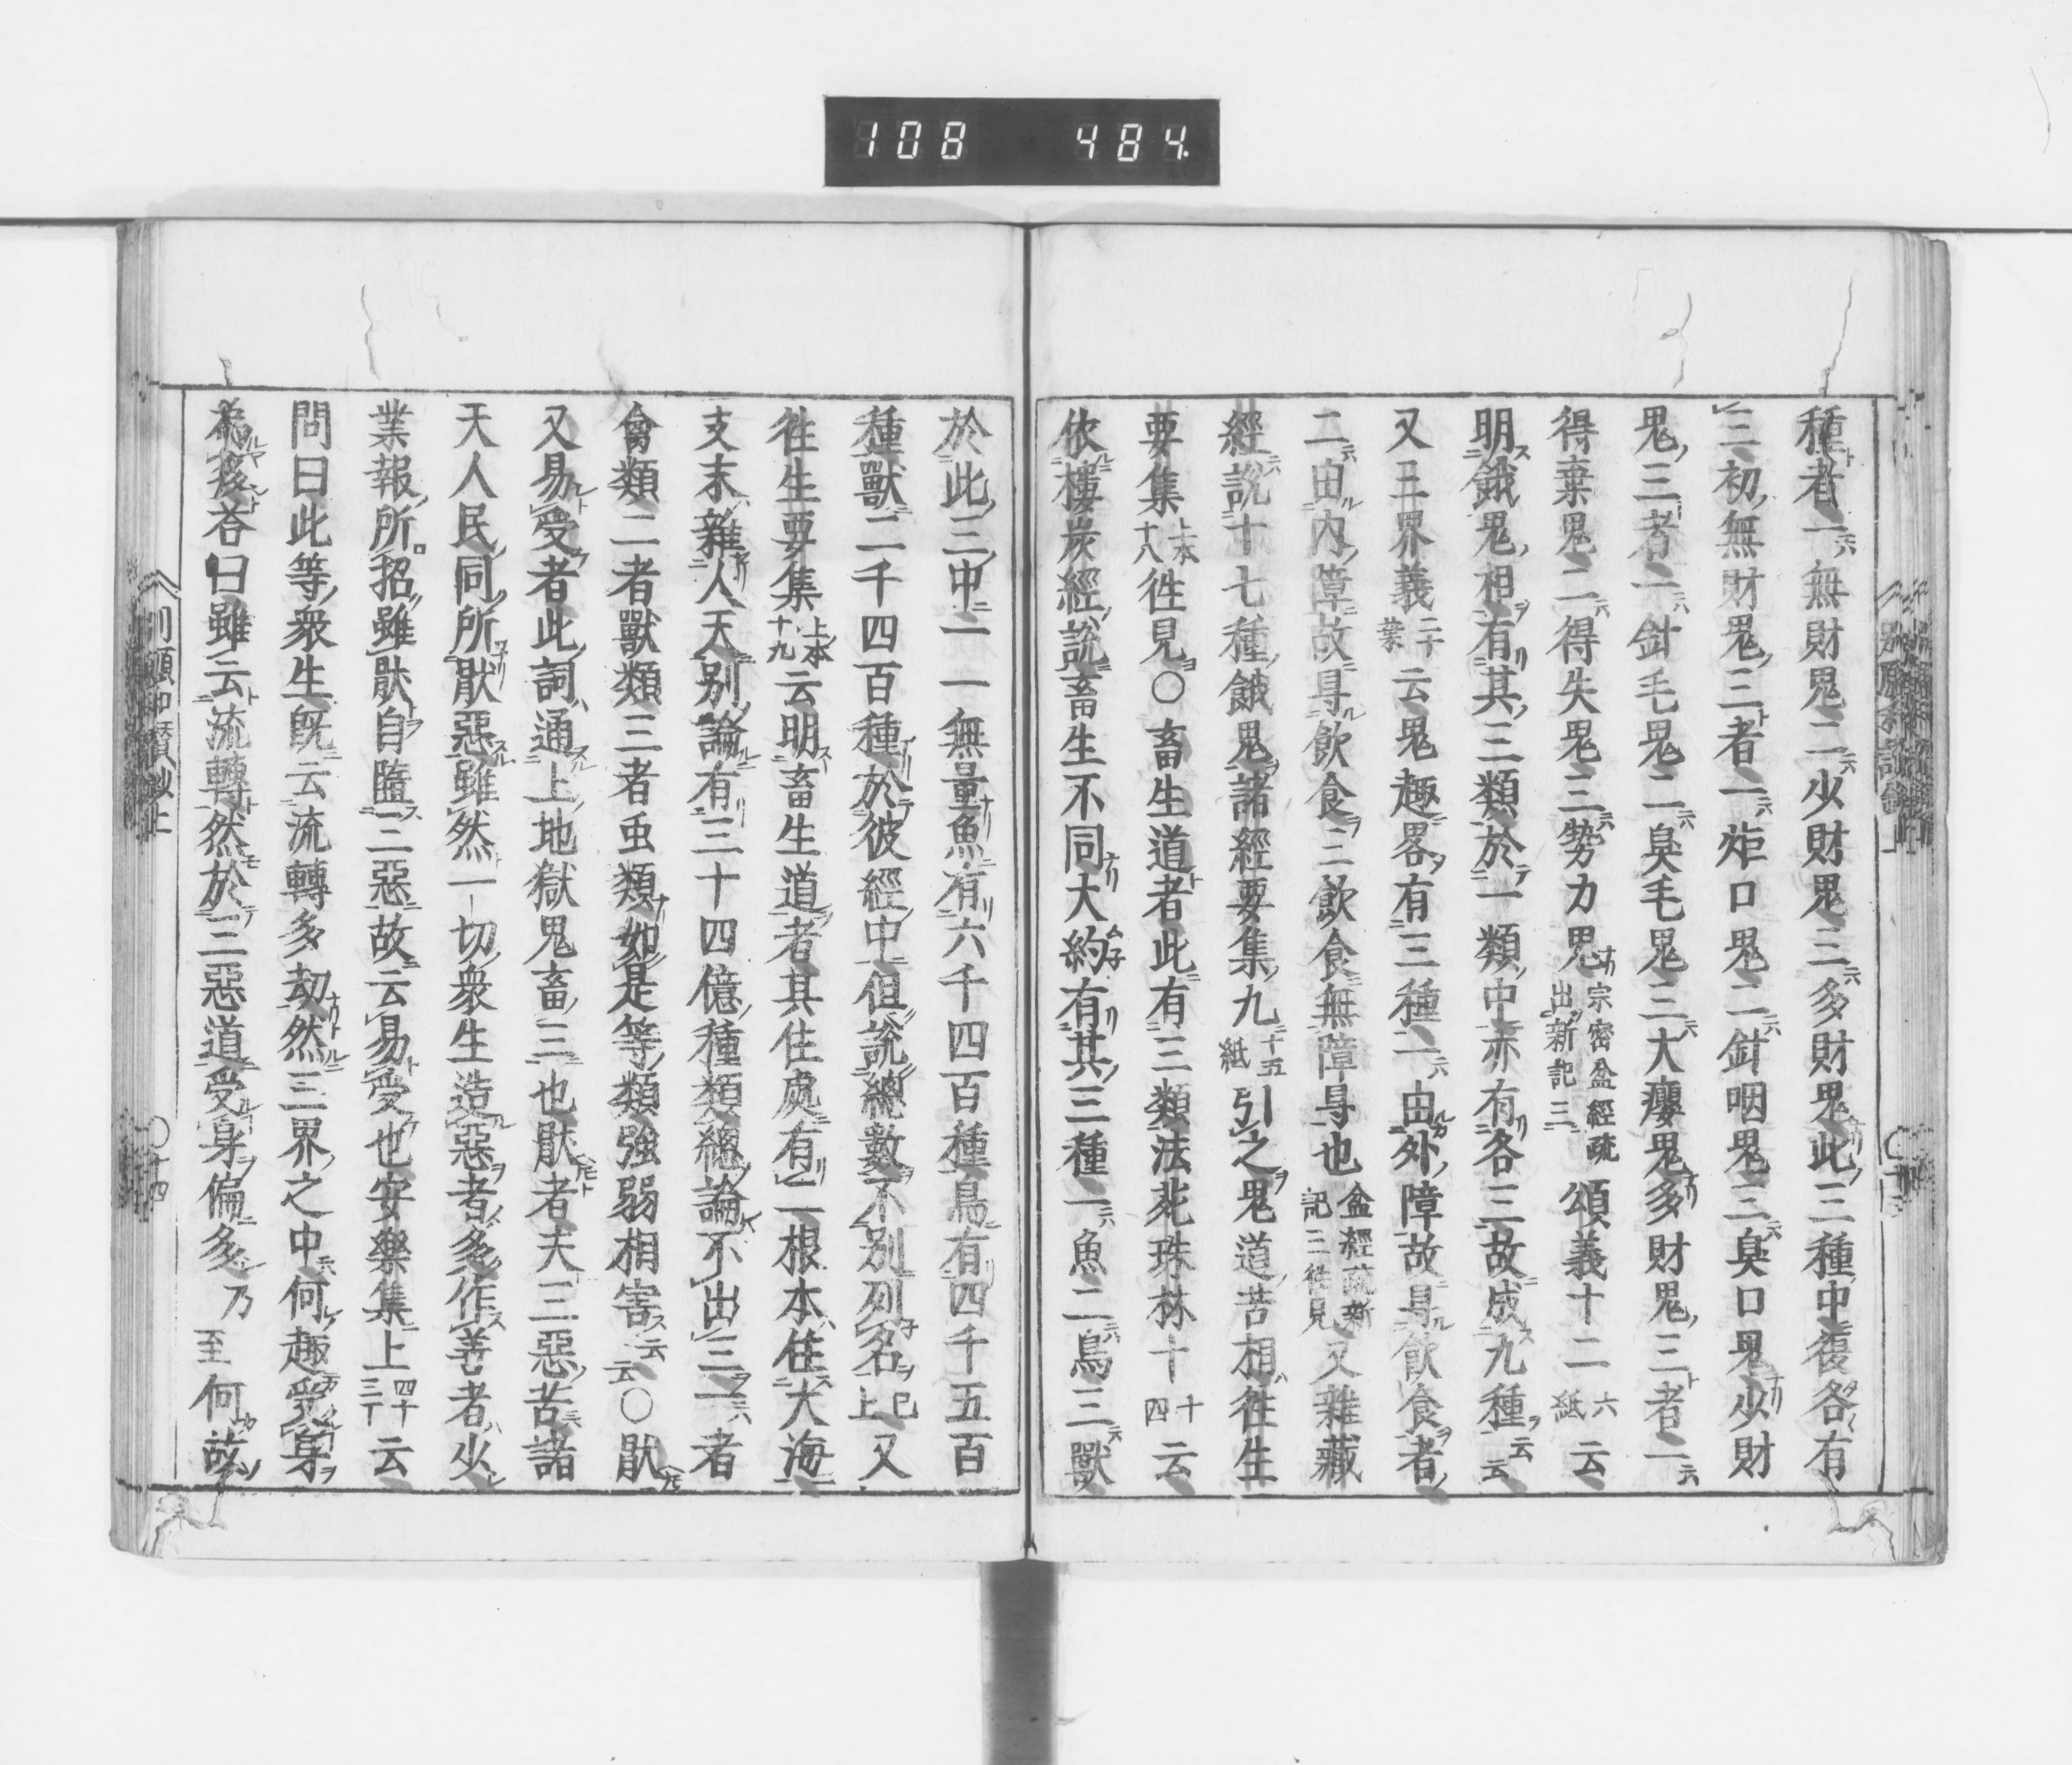 108 484
種者一無財鬼二少財鬼三多財鬼此三種中復各有
三初無財鬼三者一炬口鬼二針咽鬼三臭口鬼少財
鬼三者一針毛鬼二臭毛鬼三大癭鬼多財鬼三者一
得棄鬼二得失鬼三勢力鬼宗密盆經疏出新記三頌義十二六紙云
明餓鬼相有其三類於一類中亦有各三故成九種云云
又五界義二十葉云鬼趣畧有三種一由外障故㝵飲食者
二由內障故㝵飲食三飲食無障㝵也盆經疏新記三徃見又雜藏
經說十七種餓鬼諸經要集九十五紙引之鬼道苦相徃生
要集上本十八徃見〇畜生道者此有三類法苑珠林十十四云
依樓炭經說畜生不同大約有其三種一魚二鳥三獸
於此三中一一無量魚有六千四百種鳥有四千五百
種獸二千四百種於彼經中但說總數不別列名已上又
徃生要集上本十九云明畜生道者其住處有二根本住大海
支末雜人天別論有三十四億種類總論不出三一者
禽類二者獸類三者虫類如是等類強弱相害云云〇猒
又易受者此詞通上地獄鬼畜三也猒者夫三惡苦諸
天人民同所猒惡雖然一切衆生造惡者多作善者少
業報所招雖猒自墮三惡故云易受也安樂集上四十三丁云
問曰此等衆生既云流轉多劫然三界之中何趣受身
為後答曰雖云流轉然於三惡道受身偏多乃至何故
十四